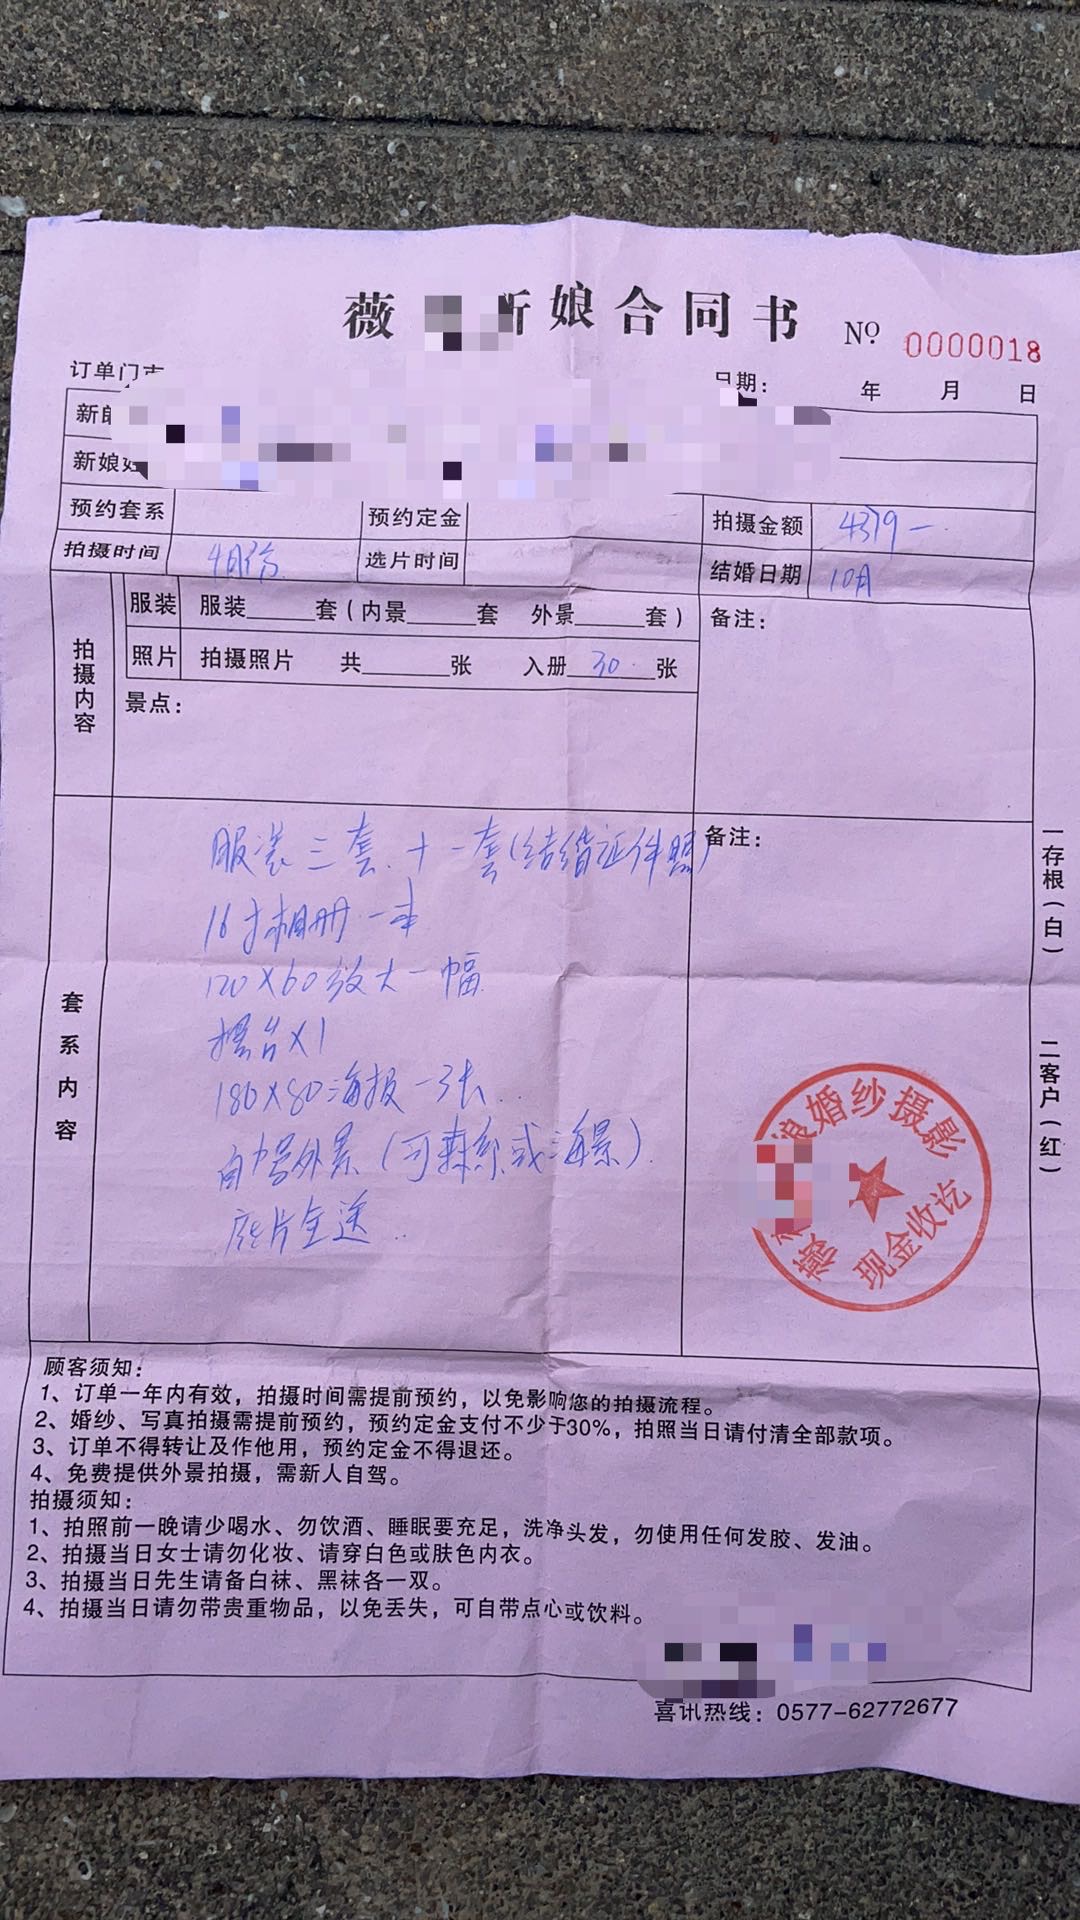 薇 新娘合同书 No 0000018
订单门市
日期： 年 月 日
新郎
新娘姓
预约套系 预约定金 拍摄金额 4379一
拍摄时间 4月份 选片时间 结婚日期 10月
拍摄内容
服装 服装______套(内景______套 外景______套) 备注：
照片 拍摄照片 共______张 入册 30 张
景点：
套系内容
备注：
服装三套.十一套(结婚证件照)
16寸相册一本
120×60放大一幅
摆台×1
180×80海报一张..
自 外景(可 或海景).
底片全送..
娘婚纱摄影
薇
现金收讫
一存根(白)
二客户(红)
顾客须知：
1、订单一年内有效，拍摄时间需提前预约，以免影响您的拍摄流程。
2、婚纱、写真拍摄需提前预约，预约定金支付不少于30%，拍照当日请付清全部款项。
3、订单不得转让及作他用，预约定金不得退还。
4、免费提供外景拍摄，需新人自驾。
拍摄须知：
1、拍照前一晚请少喝水、勿饮酒、睡眠要充足，洗净头发，勿使用任何发胶、发油。
2、拍摄当日女士请勿化妆、请穿白色或肤色内衣。
3、拍摄当日先生请备白袜、黑袜各一双。
4、拍摄当日请勿带贵重物品，以免丢失，可自带点心或饮料。
喜讯热线：0577-62772677